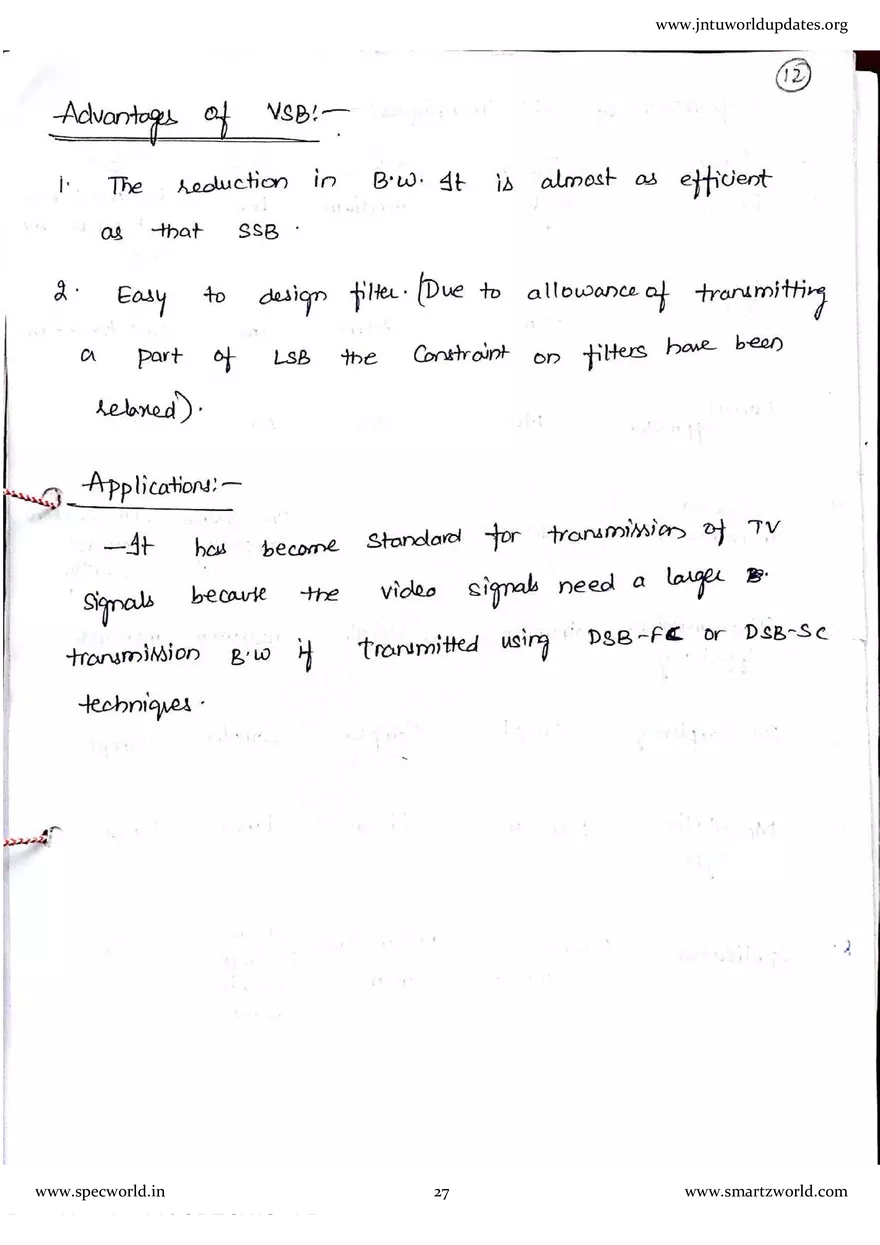 www.jntuworldupdates.org
12
Advantages of VSB:-
1. The reduction in B.W. It is almost as efficient
as that SSB.
2. Easy to design filter. (Due to allowance of transmitting
a part of LSB the Constraint on filters have been
relaxed).
Applications:-
- It has become Standard for transmission of TV
Signals because the video signals need a larger
transmission B.W if transmitted using DSB-FC or DSB-SC
techniques.
www.specworld.in 27 www.smartzworld.com